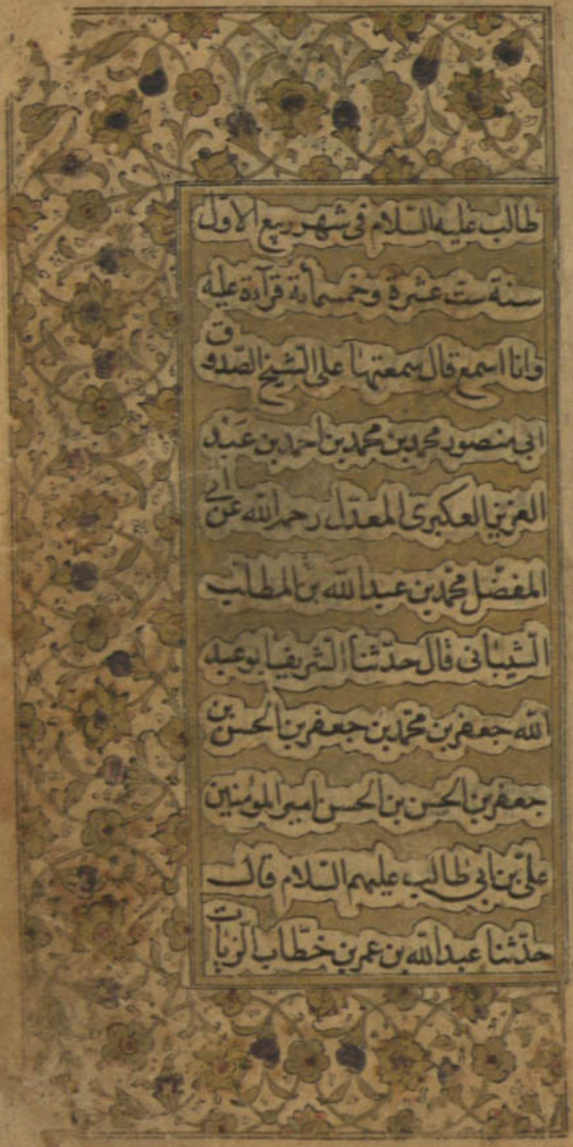 طالب عليه السّلام فى شهر ربيع الاول
سنة ست عشرة وخمسمائة قرآءة عليه
وانا اسمع قال سمعتها على الشّيخ الصّدوق
ابي منصور محمد بن محمد بن احمد بن عبد
العزيز العكبرى المعدّل رحمه الله عن ابي
المفضّل محمّد بن عبد الله بن المطلب
الشّيبانى قال حدّثنا الشّريف ابو عبد
الله جعفر بن محمّد بن جعفر بن الحسن بن
جعفر بن الحسن بن الحسن امير المومنين
علىّ بن ابي طالب عليهم السّلام قال
حدّثنا عبد الله بن عمر بن خطّاب الزيات